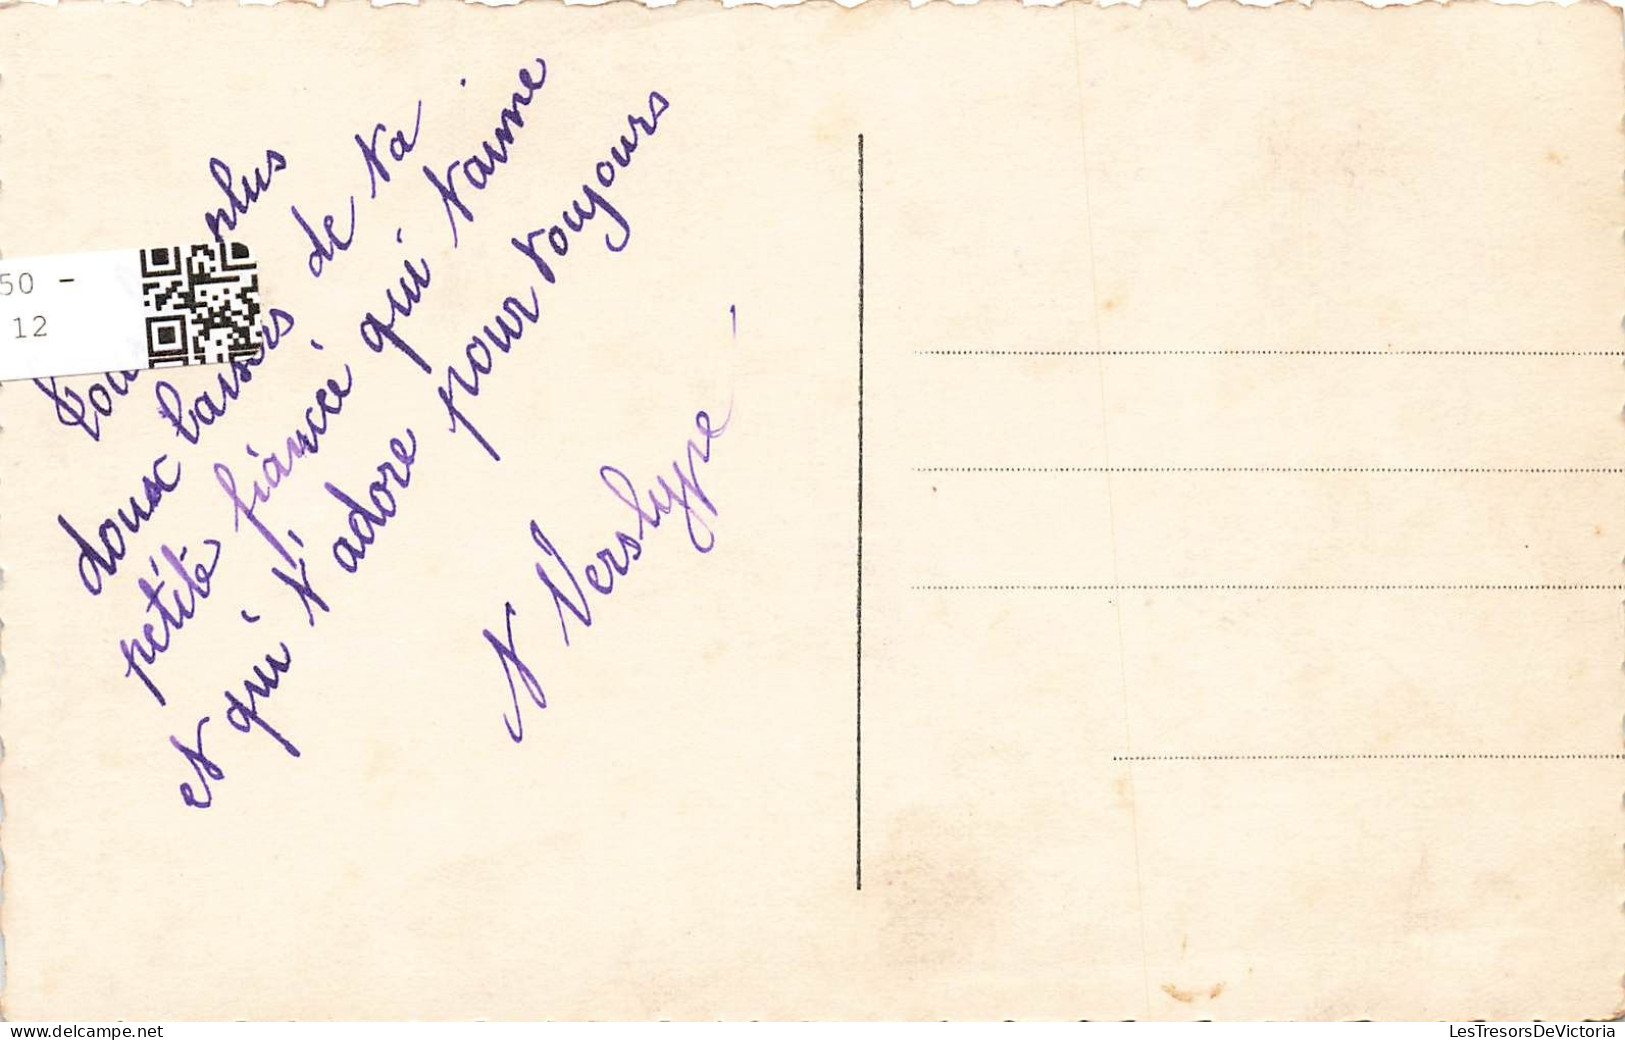 plus
doux baisers de ta
petite fiancée qui t'aime
et qui t'adore pour toujours
N Verslype
50 -
12
LesTresorsDeVictoria
delcampe.net